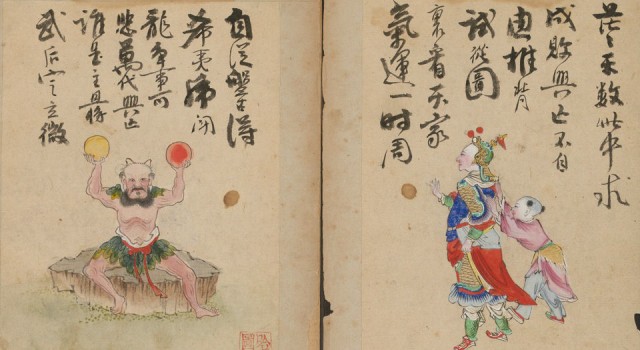 茫〻天数此中求
成敗興亡不自
由推背
試從圖
裏看天家
氣運一時周
自從盤古得
希夷虎鬥
龍爭事可
悲萬代興亡
誰是主
武后定立微